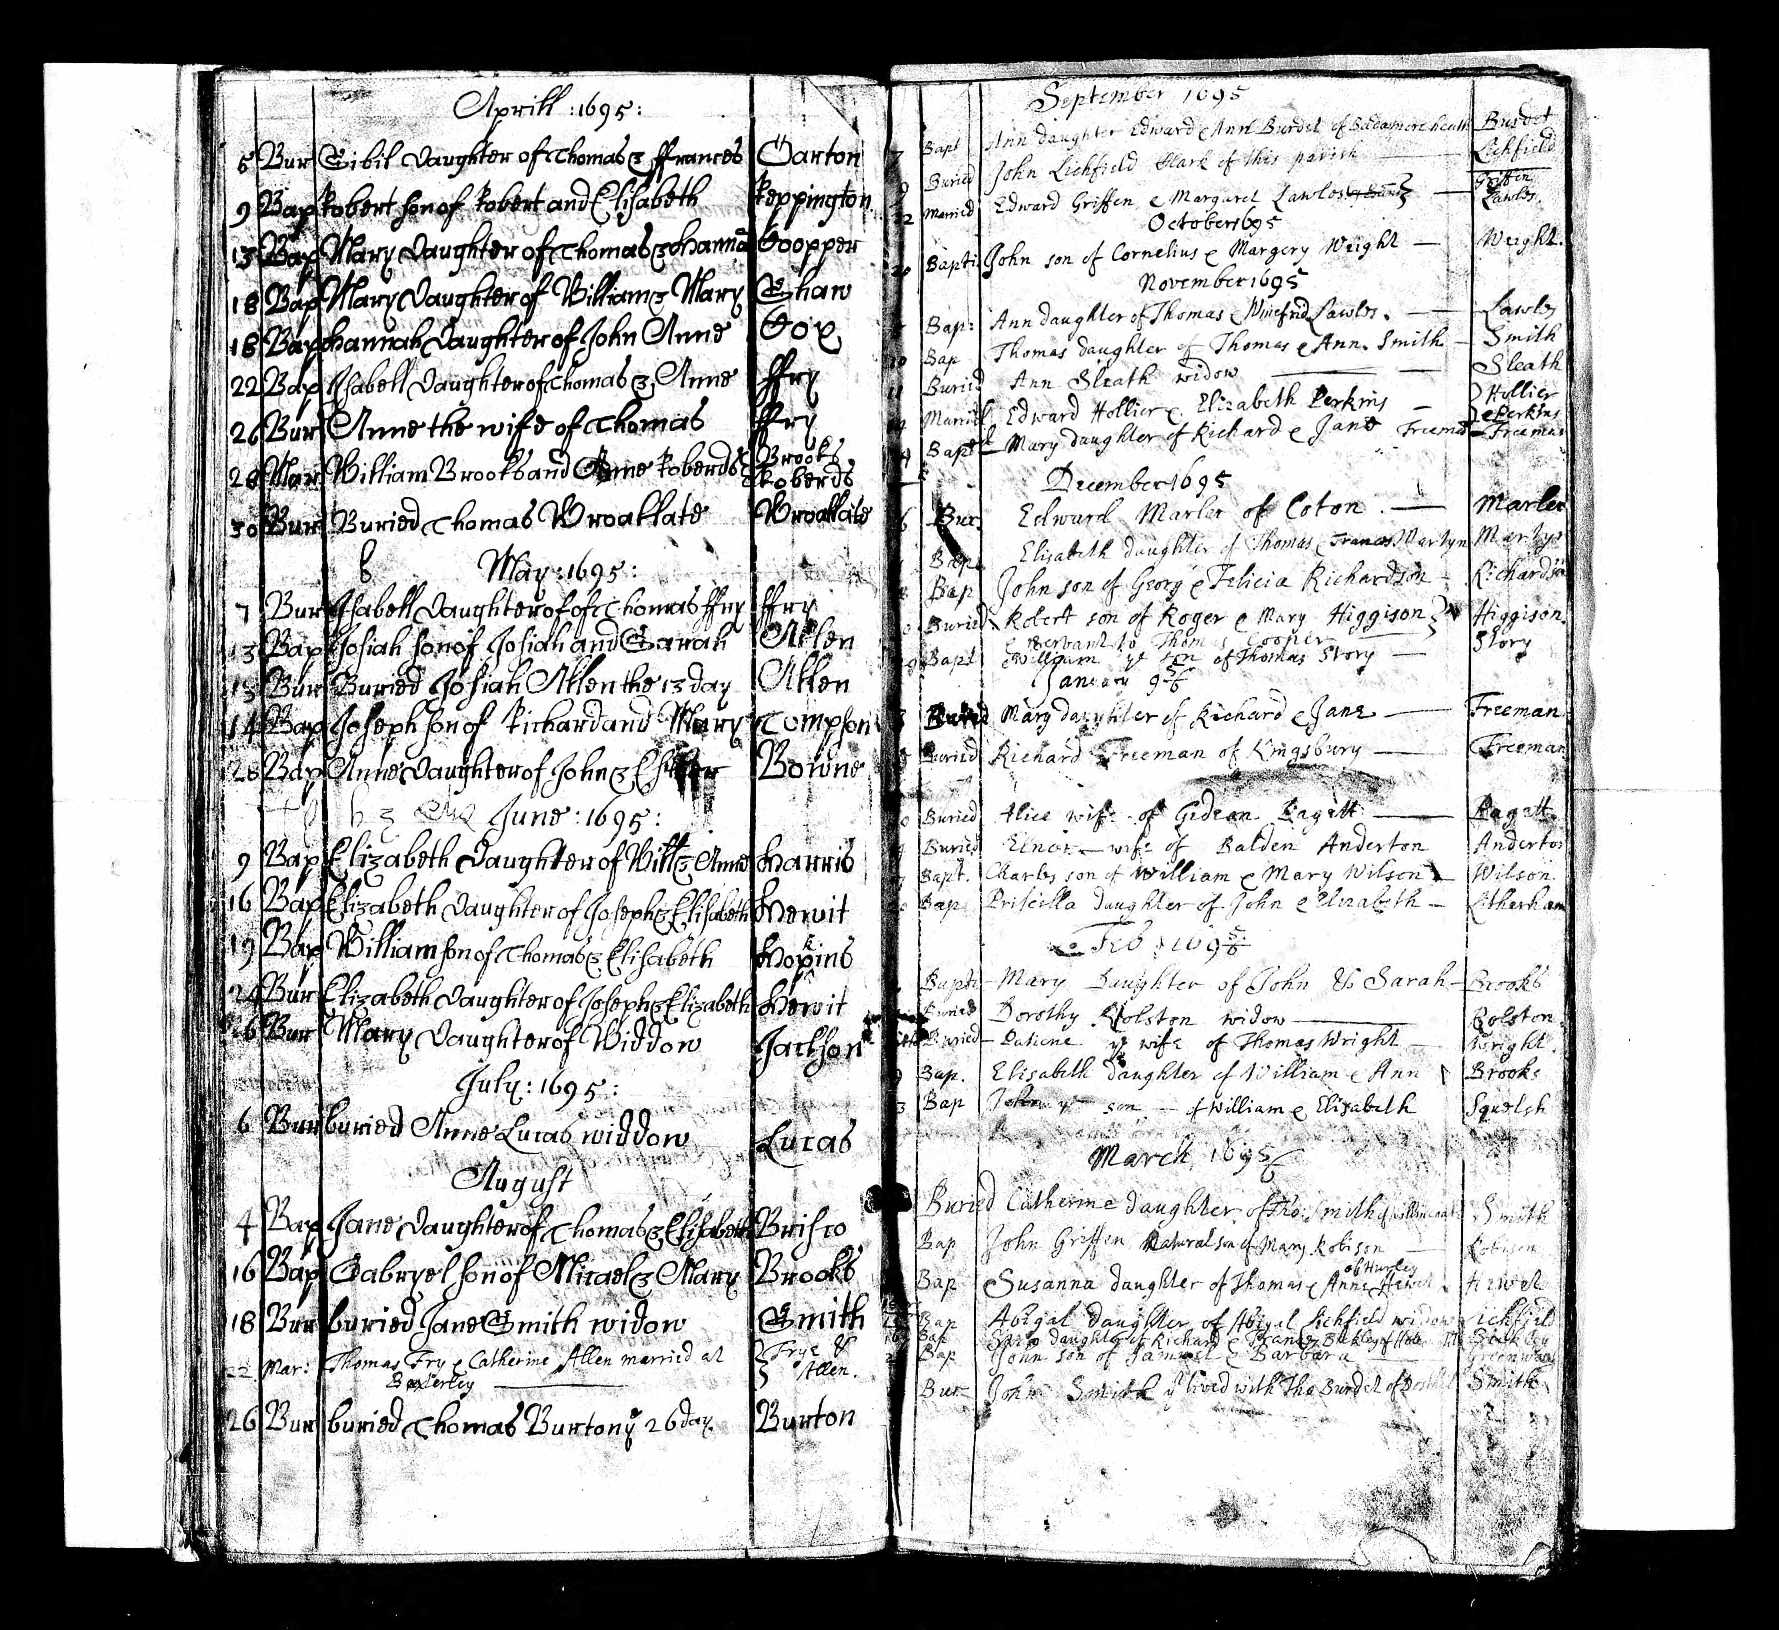 Aprill :1695:
5 Bur Sibil Daughter of Thomas & ffrances Garton
9 Bap Robert son of Robert and Elisabeth Keppington
13 Bap Mary Daughter of Thomas & Hanna Coopper
18 Bap Mary Daughter of William & Mary Shaw
18 Bap Hannah Daughter of John Anne Cox
22 Bap Isabell Daughter of Thomas & Anne ffry
26 Bur Anne the wife of Thomas ffry
28 Mar William Brooks and Anne Roberds Brooks
Roberds
30 Bur Buried Thomas Wroattate Wroattate
May :1695:
7 Bur Isabell Daughter of of Thomas ffry ffry
13 Bap Josiah son of Josiah and Sarah Allen
13 Bur Buried Josiah Allen the 13 day Allen
14 Bap Joseph son of Richard and Mary Tompson
28 Bap Anne Daughter of John & Bowne
June :1695:
9 Bap Elizabeth Daughter of Will & Anne Harris
16 Bap Elizabeth Daughter of Joseph & Elisabeth Hewit
19 Bap William son of Thomas & Elisabeth Hopkins
24 Bur Elizabeth Daughter of Joseph & Elizabeth Hewit
26 Bur Mary Daughter of Widdow Jackson
July :1695:
6 Bur buried Anne Lucas widdow Lucas
August
4 Bap Jane Daughter of Thomas & Elisabeth Brisco
16 Bap Gabryel son of Micael & Mary Brooks
18 Bur buried Jane Smith widow Smith
22 Mar: Thomas Fry & Catherine Allen married at Frye &
Baxterley Allen.
26 Bur buried Thomas Burton ye 26 day. Burton
September 1695
7 Bapt Ann daughter Edward & Ann Burdet of Burdet
9 Buried John Lichfield Clark of this parish Lichfield
22 Married Edward Griffen & Margaret Lawles Griffin
Lawles
October 1695
20 Bapti John son of Cornelius & Margery Weight Weight.
November 1695
Bap: Ann daughter of Thomas & Winefrid Lawles. Lawles
10 Bap Thomas daughter of Thomas & Ann Smith Smith
11 Buried Ann Sleath widow Sleath
Married Edward Hollier & Elizabeth Perkins Hollier
& Perkins
Bapt Mary daughter of Richard & Jane Freeman Freeman
December 1695
6 Bur Edward Marler of Coton Marler
Bap Elisabeth daughter of Thomas & Frances Martyn Martyn
Bap John son of Georg & Felicia Richardson Richardson
Buried Robert son of Roger & Mary Higgison Higgison
servant to Thomas Cooper
Bapt William ye son of Thomas Story Story
January 95/6
Buried Mary daughter of Richard & Jane Freeman
Buried Richard Freeman of Kingsbury Freeman
Buried Alice wife of Gideon Ragatt Ragatt
Buried Elnor wife of Balden Anderton Anderton
Bapt. Charles son of William & Mary Wilson Wilson.
Bap Priscilla daughter of John & Elizabeth Litherham
Feb: 1695/6
Bapti Mary Daughter of John & Sarah Brooks
Buried Dorothy Rolston widow Rolston
Buried Patiene ye wife of Thomas Wright Wright.
9 Bap. Elisabeth daughter of William & Ann Brooks
3 Bap John ye son of William & Elisabeth Squelch
March 1695/6
Buried Catherine daughter of Tho: Smith Smith
Bap John Griffen Natural son of Mary Robison Robison
of Hurley
Bap Susanna daughter of Thomas & Anne Hewet Hewet
Bap Abigal Daughter of Abigal Lichfield widow Lichfield
Bap daughter of Richard & Bickley
Bap John son of Samuel & Barbara Greenway
Bur John Smith yt lived with Tho Burdet of Smith